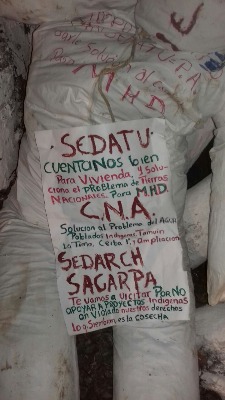 M.H.D
SEDATU
CUENTANOS bien
Para Vivienda, y Solu-
ciona el PRoblema de Tierras
NACIONALES. Para M.H.D.
C.N.A.
Solucion al Problema del Agua
Poblados Indigenas. Tamuin
La Tima, Ceiba 1, y Ampliacion
SEDARCH
SAGARPA
Te vamos a visitar POR NO
APOYAR A PROYECTOS Indigenas
an Violado nuestros derechos
Lo q Siembran, es la COSECHA